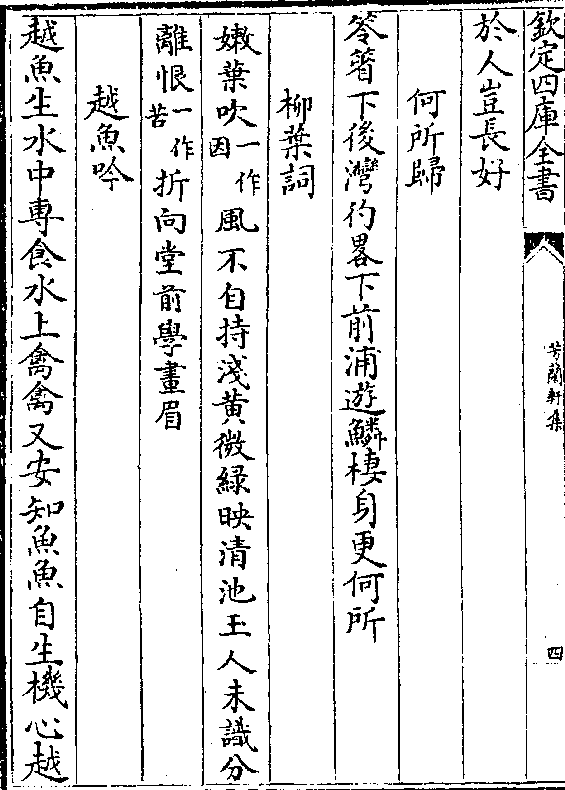 欽定四庫全書
芳蘭軒集
四
於人豈長好
何所歸
笭箵下後灣彴畧下前浦遊鱗棲身更何所
柳葉詞
嫩葉吹一作因風不自持淺黄微緑映清池玉人未識分
離恨一作苦折向堂前學畫眉
越魚吟
越魚生水中專食水上禽禽又安知魚魚自生機心越